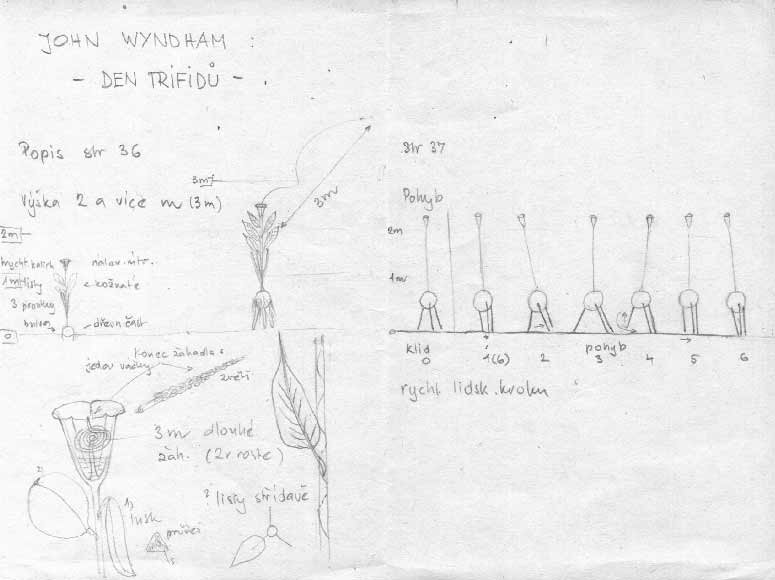 JOHN WYNDHAM :
- DEN TRIFIDŮ -
Popis str 36
3m
Výška 2 a více m (3m)
3m
2m
1m listy
kožnaté
3
0
dřevn část
Konec žahadla s
jedov váčky
3 m dlouhé
žah. (2r roste)
2)
1)
lusk
? listy střídavě
Str 37
Pohyb
2m
1m
klid
pohyb
0
1(6)
2
3
4
5
6
rychl. lidsk. kroku